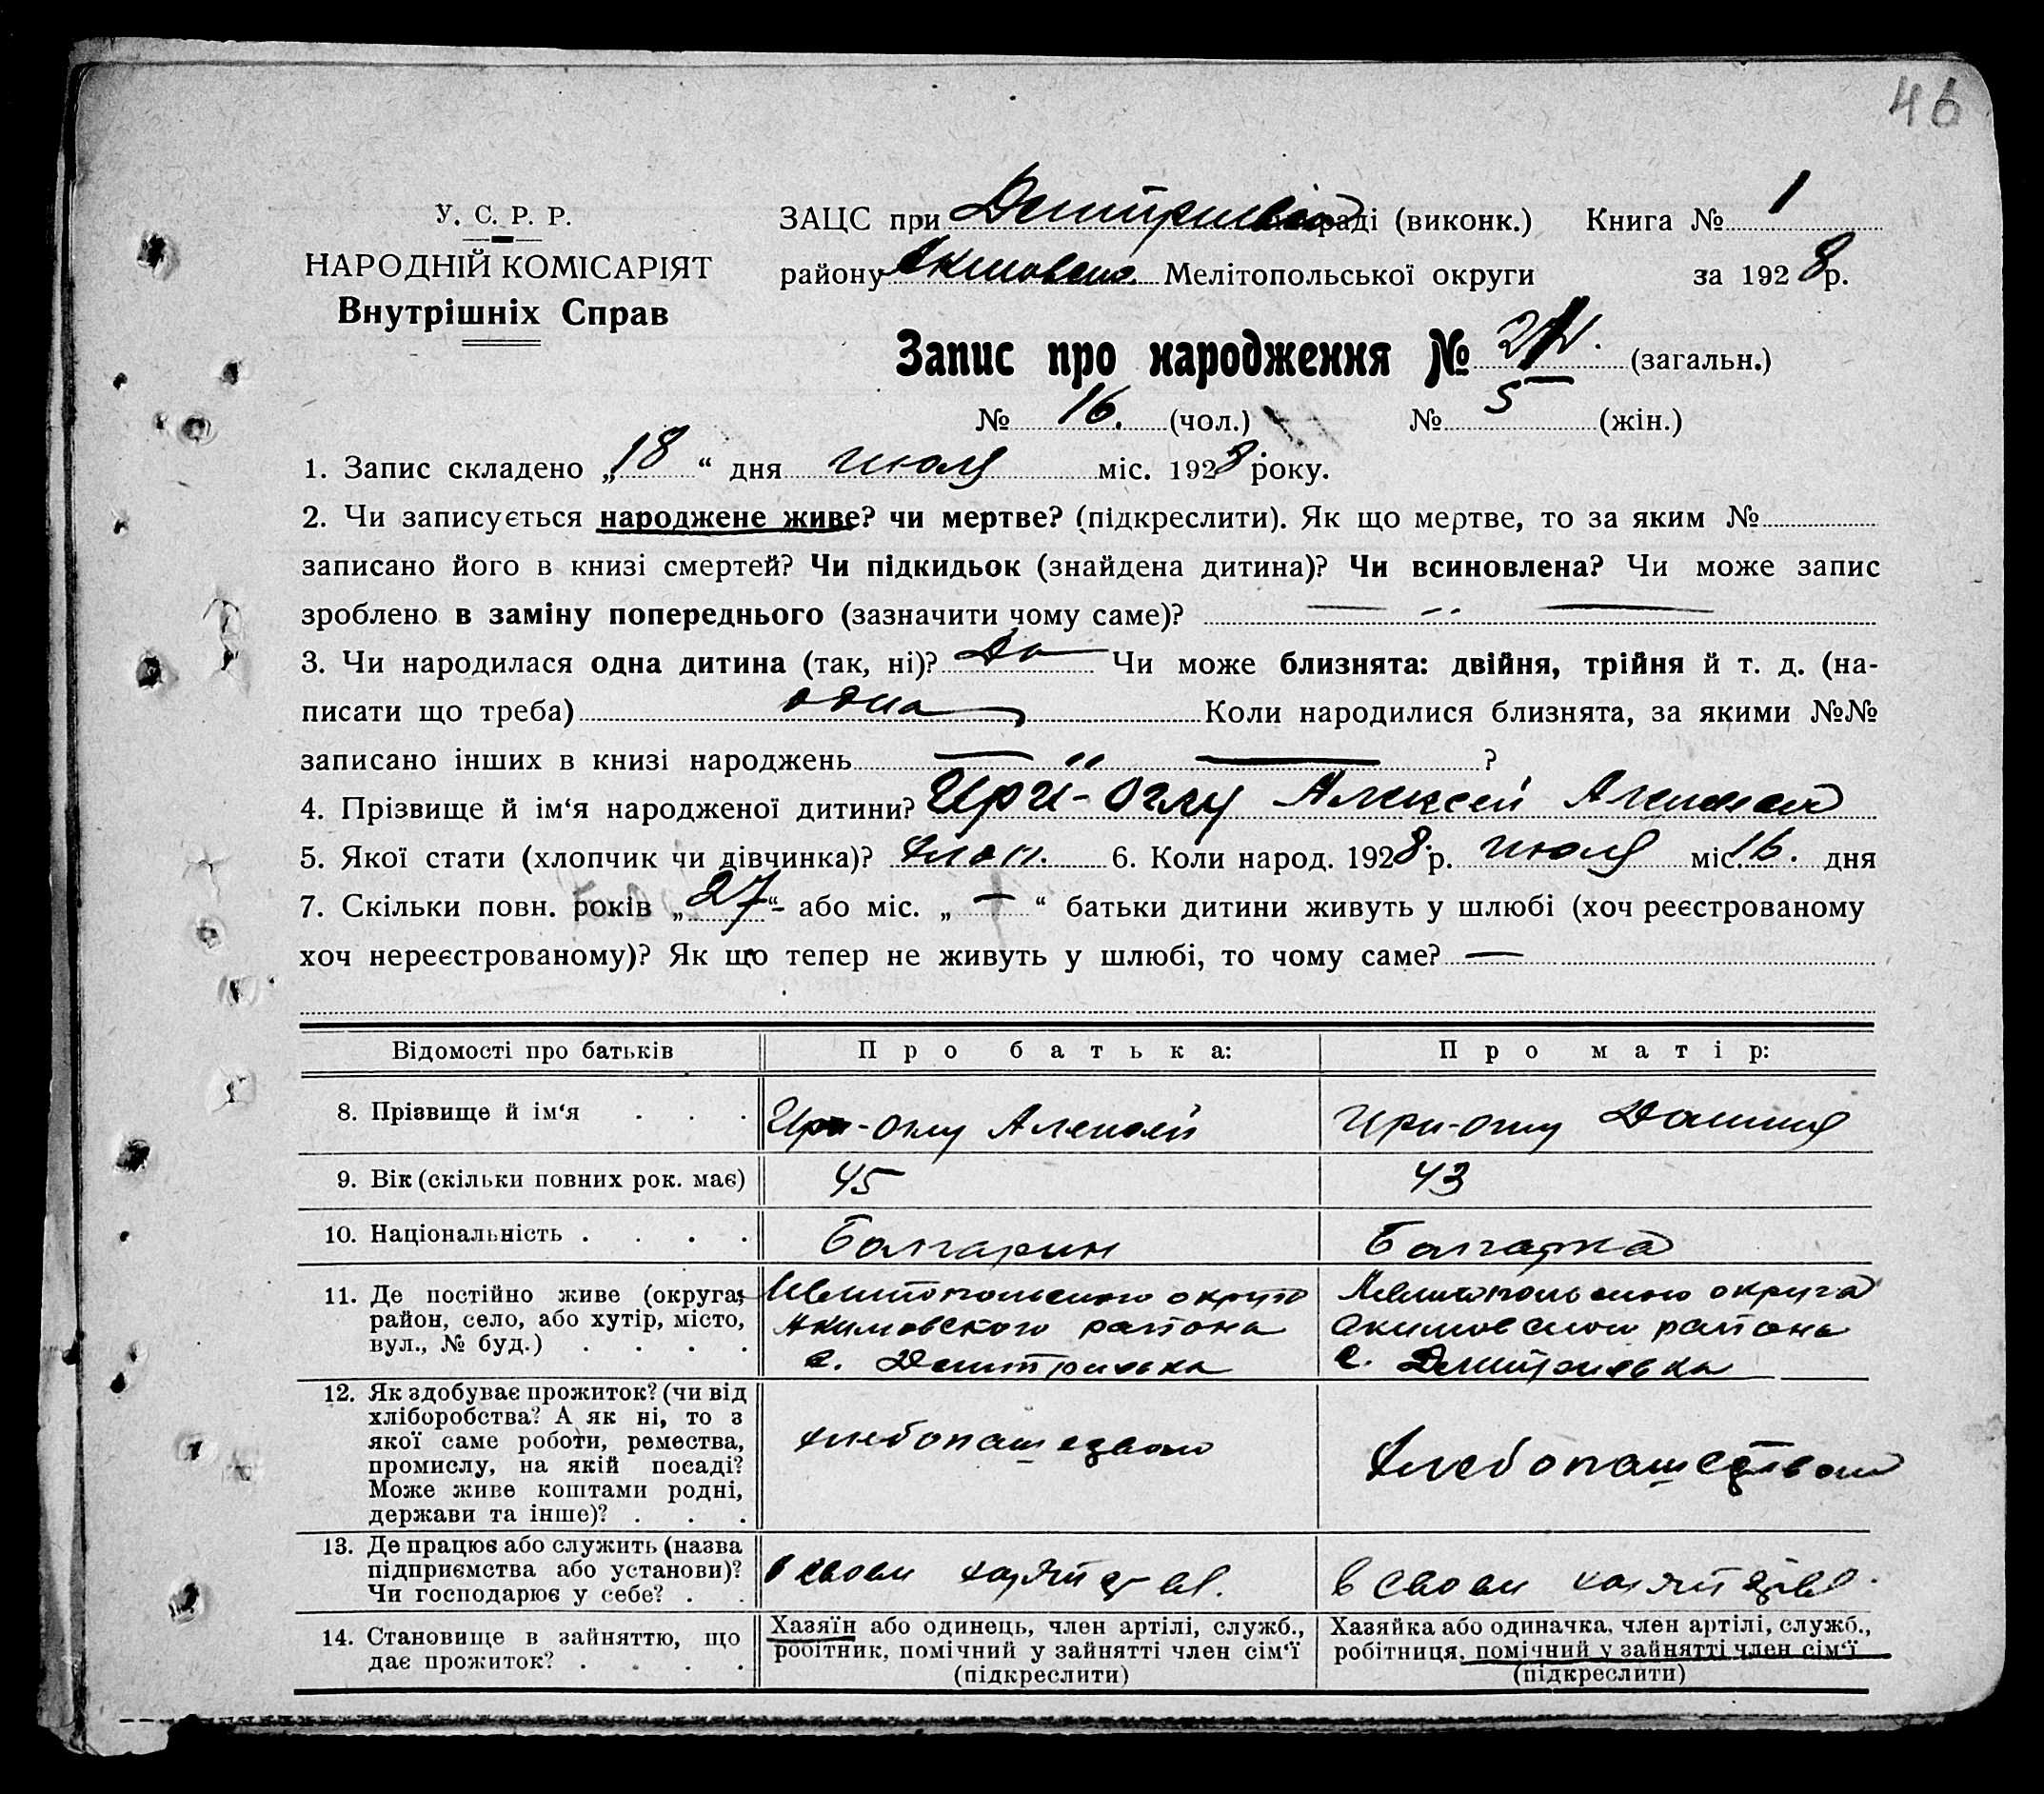 46
У. С. Р. Р.
НАРОДНІЙ КОМІСАРІЯТ
Внутрішніх Справ
ЗАЦС при раді (виконк.) Книга № 1
району Мелітопольської округи за 1928 р.
Запис про народження № (загальн.)
№ 16. (чол.) № 5 (жін.)
1. Запис складено „18“ дня июля міс. 1928 року.
2. Чи записується народжене живе? чи мертве? (підкреслити). Як що мертве, то за яким №
записано його в книзі смертей? Чи підкидьок (знайдена дитина)? Чи всиновлена? Чи може запис
зроблено в заміну попереднього (зазначити чому саме)? — „ —
3. Чи народилася одна дитина (так, ні)? Да Чи може близнята: двійня, трійня й т. д. (на-
писати що треба) одна Коли народилися близнята, за якими №№
записано інших в книзі народжень — „ — ?
4. Прізвище й ім‘я народженої дитини? Ири-Оглу Алексей
5. Якої стати (хлопчик чи дівчинка)? хлоп. 6. Коли народ. 1928 р. июля міс. 16. дня
7. Скільки повн. років „27“ або міс. „—“ батьки дитини живуть у шлюбі (хоч реєстрованому
хоч нереєстрованому)? Як що тепер не живуть у шлюбі, то чому саме? —
Відомості про батьків Про батька: Про матір:
8. Прізвище й ім‘я . . . Ири-Оглу Алексей Ири-Оглу
9. Вік (скільки повних рок. має) 45 43
10. Національність . . . . Болгарин Болгарка
11. Де постійно живе (округа, Мелитопольского округа Мелитопольского округа
район, село, або хутір, місто, Акимовского района Акимовского района
вул., № буд.) . . . . с. Дмитриевка с. Дмитриевка
12. Як здобуває прожиток? (чи від
хліборобства? А як ні, то з
якої саме роботи, ремества, хлебопашеством хлебопашеством
промислу, на якій посаді?
Може живе коштами родні,
держави та інше)? . . .
13. Де працює або служить (назва
підприємства або установи)? в своем хозяйстве. в своем хозяйстве.
Чи господарює у себе? . .
14. Становище в зайняттю, що Хазяїн або одинець, член артілі, служб., Хазяйка або одиначка, член артілі, служб.,
дає прожиток? . . . . робітник, помічний у зайнятті член сім‘ї робітниця, помічний у зайнятті член сім‘ї
(підкреслити) (підкреслити)